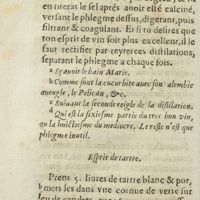 en tireras le sel aprés auoir esté calciné,
versant le phlegme dessus, digerant, puis
filtrant & coagulant. Et si tu desires que
ton esprit de vin soit plus excellent, il le
faut rectifier par reyterees distilations,
separant le phlegme à chaque fois.
a Sçauoir le bain Marie.
b Comme sont la cucurbite auec son alembic
aueugle, le Pelican, &c.
c Suiuant la seconde reigle de la distilation.
d Qui est la sixiesme partie du tres bon vin,
ou la huictiesme du mediocre. Le reste n'est que
phlegme inutil.
Esprit de tartre.
Prens 5. liures de tartre blanc & pur,
mets les dans vne cornue de verre sur